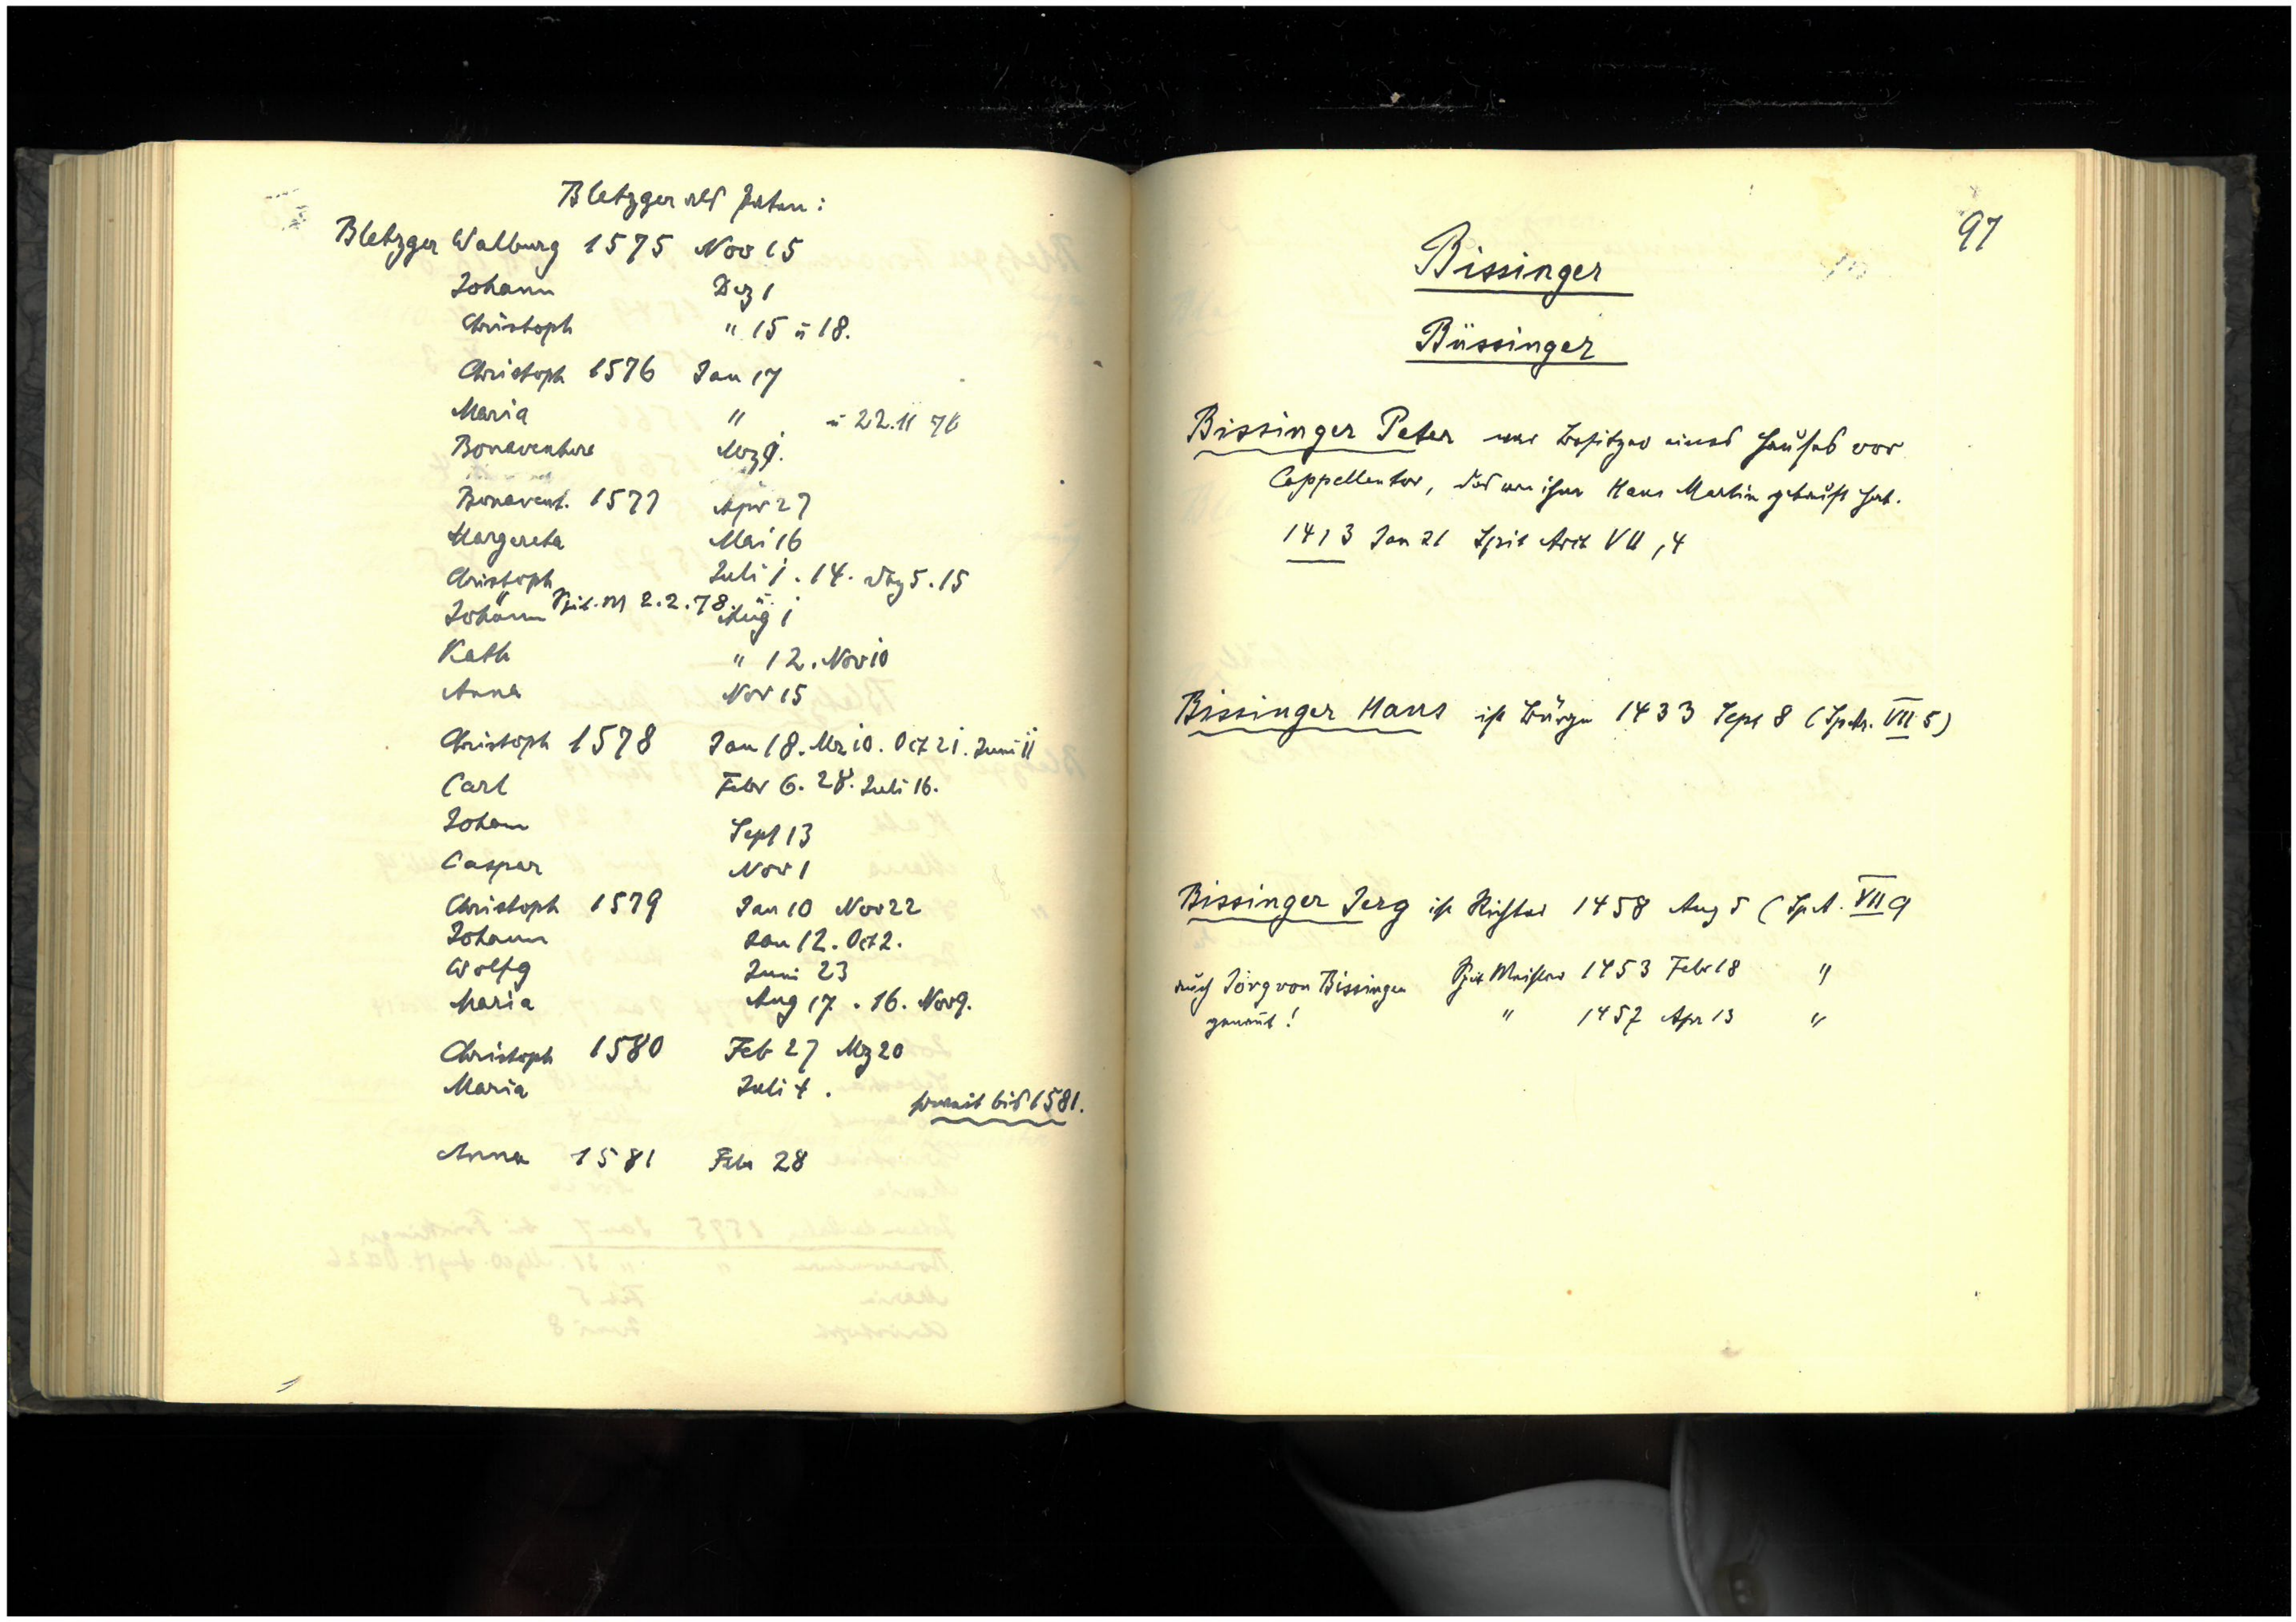 Bletzger als Paten:
Bletzger Walburg 1575 Nov 15
Johann Dez 1
Christoph " 15 u 18.
Christoph 1576 Jan 17
Maria " u 22.11 76
Bonaventura Mrz
Bonavent. 1577 Apr 27
Margareta Mai 16
Christoph Juli 1. 14. 5. 15
" 2.2.78 u.
Johann Aug 1
Kath " 12. Nov 10
Anna Nov 15
Christoph 1578 Jan 18. Mrz 10. Oct 21. Juni 11
Carl Febr 6. 28. Juli 16.
Johann Sept 13
Caspar Nov 1
Christoph 1579 Jan 10 Nov 22
Johann Jan 12. Oct 2.
Wolfg Juni 23
Maria Aug 17. 16. Nov 9.
Christoph 1580 Feb 27 Mrz 20
Maria Juli 4.
soweit bis 1581.
Anna 1581 Febr 28
97
Bissinger
Büssinger
Bissinger Peter war Besitzer eines Hauses vor
Cappellentor, das von ihm Hans Martin gekauft hat.
1413 Jan 21 Spit Arch VII, 4
Bissinger Hans ist Bürge 1433 Sept 8 (VII 5)
Bissinger Jerg ist Richter 1458 Aug 5 (Sp A. VII 9
auch Jörg von Bissingen Spit Meister 1453 Febr 18 "
genannt! " 1457 Apr 13 "